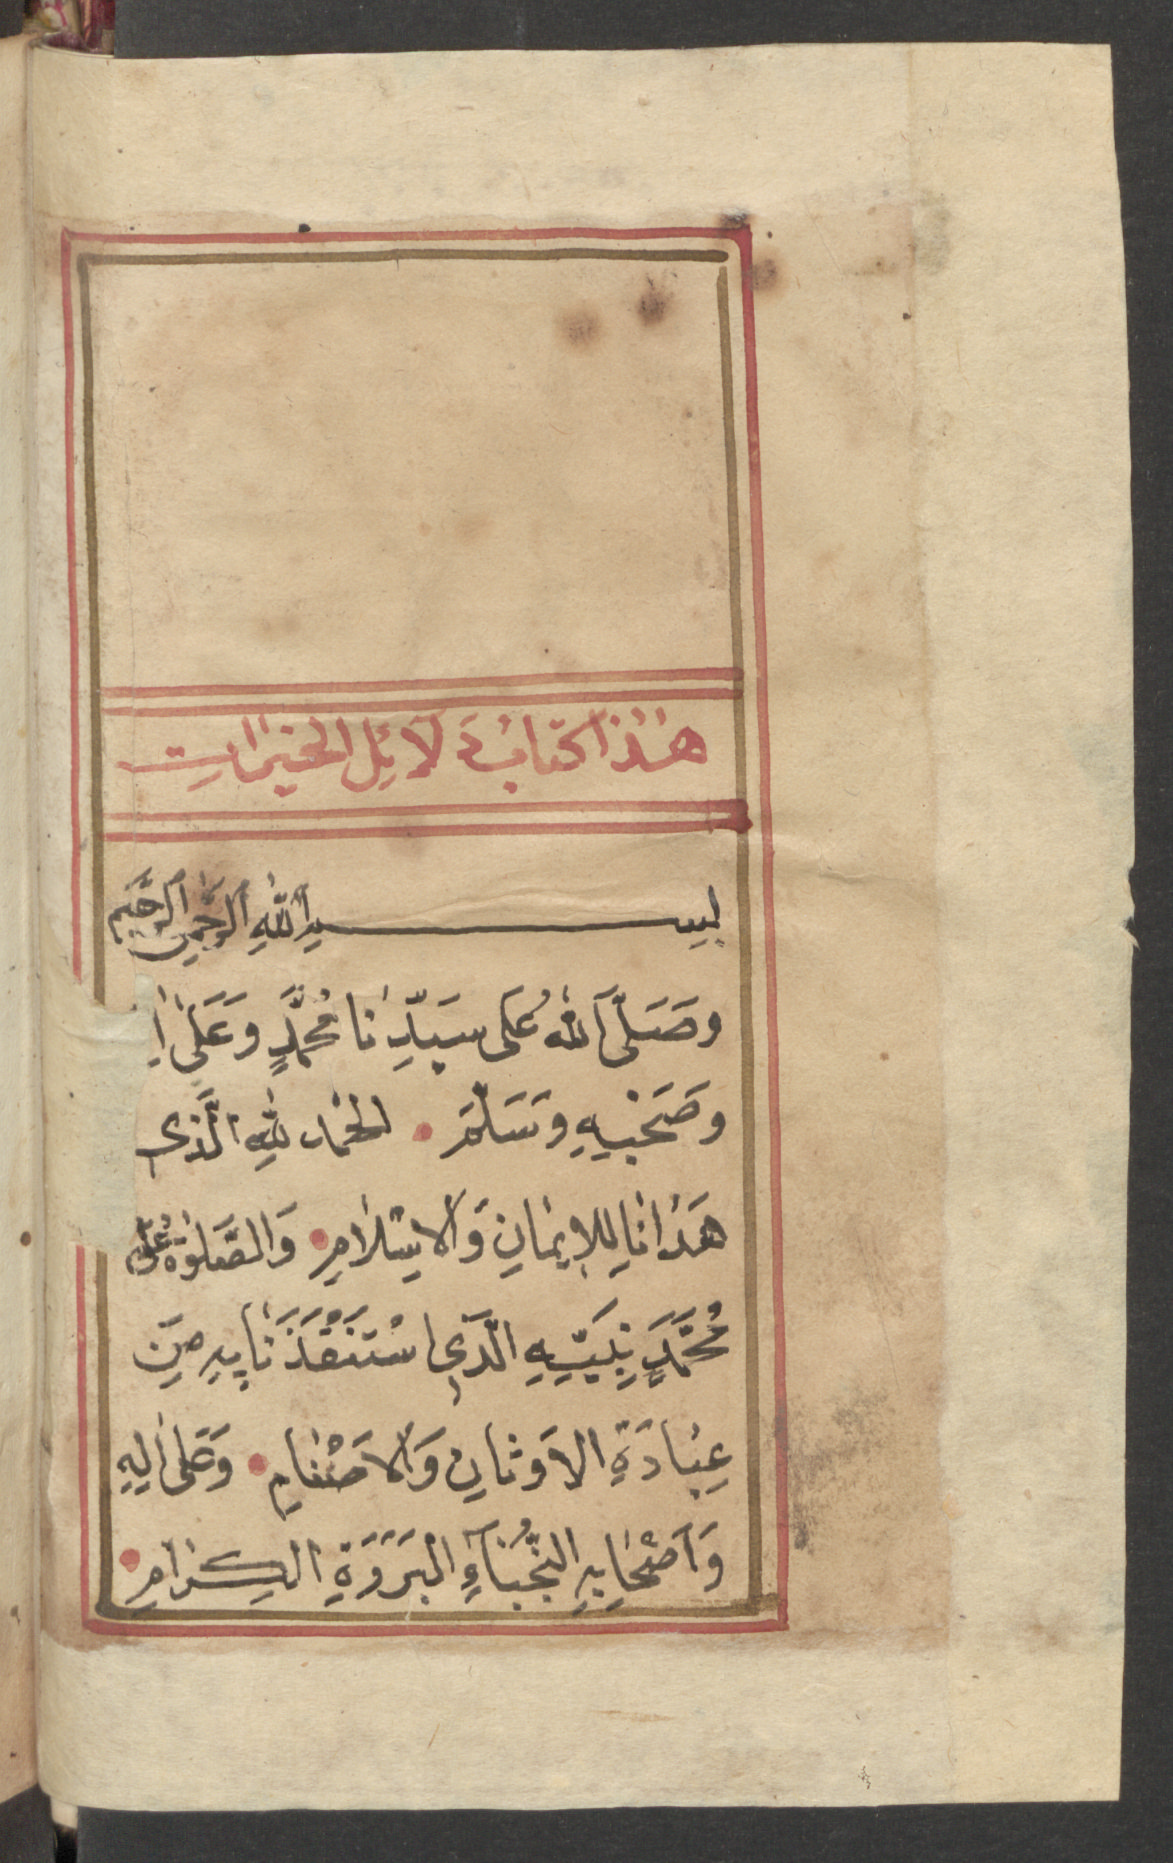 هٰذا كتابُ دَلآئِل الخيرات
بسم الله الرحمن الرحيم
وصَلَّى اللهُ عَلى سَيِّدِنا مُحَمَّدٍ وَعَلىٰ
وصَحْبِهِ وَسَلَّمَ الحَمد لله الَّذى
هَدانا لِلإيمَانِ وَالاِسْلامِ وَالصَّلوٰةُ عَلَى
مُحَمَّدٍ نَبِيِّهِ الَّذِى اسْتَنْقَذَنَا بِهِ مِنْ
عِبَادَةِ الاَوثانِ وَالاَصْنَامِ وَعَلىٰ اٰلِهِ
وَاَصْحَابِهِ النُّجَبَآءِ البَرَرَةِ الكِرَامِ